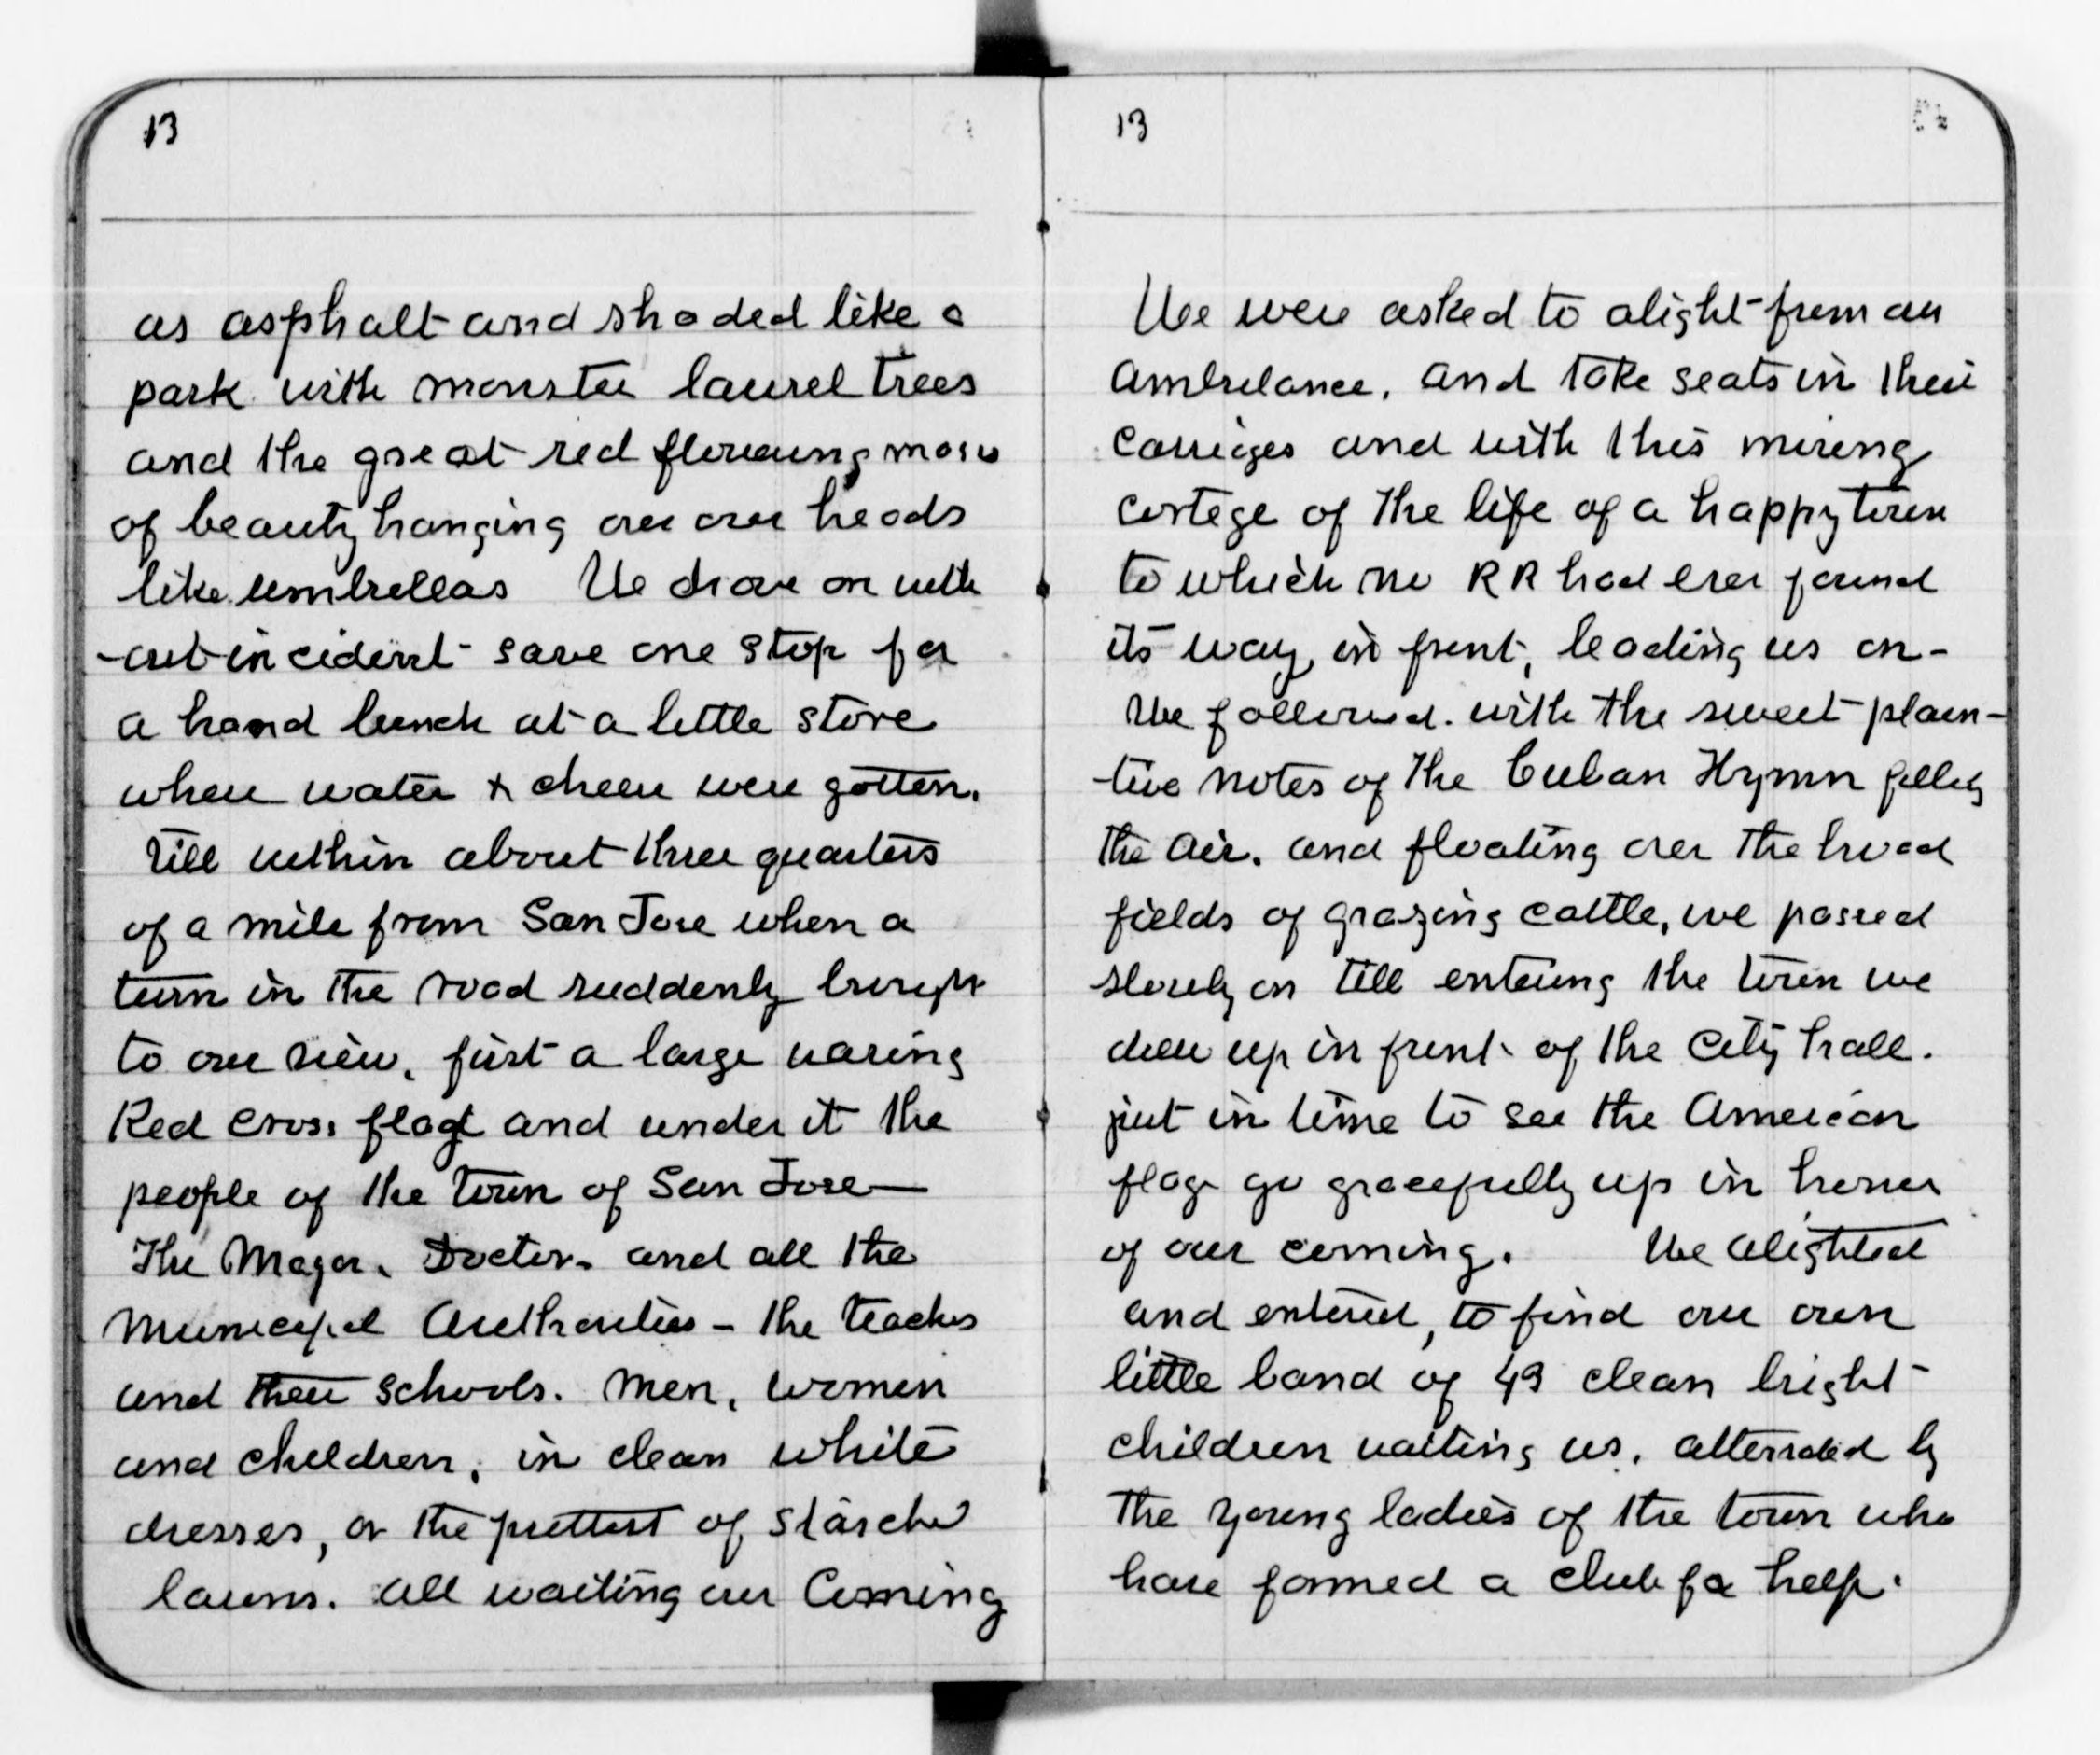 13
as asphalt and shaded like a
park with monster laurel trees
and the great red flowering mass
of beauty hanging over our heads
like umbrellas We drove on with
-out incident save one stop for
a hand lunch at a little store
where water & cheese were gotten.
till within about three quarters
of a mile from San Jose when a
turn in the road suddenly brought
to our view, first a large waving
Red Cross flag and under it the
people of the town of San Jose—
The Mayor, Doctor, and all the
Municipal Authorities – the teachers
and their schools. Men, women
and children, in clean white
dresses, or the prettiest of starched
lawns. all waiting our Coming
13
We were asked to alight from our
Ambulance, and take seats in their
Carriages and with this moving
cortege of the life of a happy town
to which no RR had ever found
its way, in front, leading us on -
We followed. with the sweet plain-
-tive notes of the Cuban Hymn filling
the air, and floating over the broad
fields of grazing cattle, we passed
slowly on till entering the town we
drew up in front of the City hall.
just in time to see the American
flag go gracefully up in honor
of our coming. We alighted
and entered, to find our own
little band of 49 clean bright
children waiting us, attended by
the young ladies of the town who
have formed a club for help.